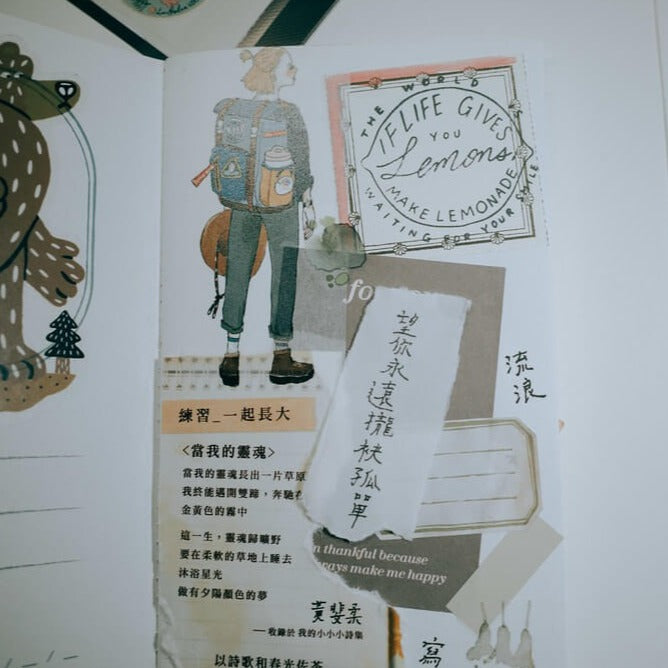 THE WORLD
IF LIFE GIVES
YOU
Lemons
MAKE LEMONADE
WAITING FOR YOUR SMILE
fo
望你永遠攏袂孤單
流浪
練習_一起長大
<當我的靈魂>
當我的靈魂長出一片草原
我終能邁開雙蹄，奔馳在
金黃色的霧中
這一生，靈魂歸曠野
要在柔軟的草地上睡去
沐浴星光
做有夕陽顏色的夢
thankful because
make me happy
黃斐柔
——收錄於 我的小小小詩集
以詩歌和春光佐茶
寫